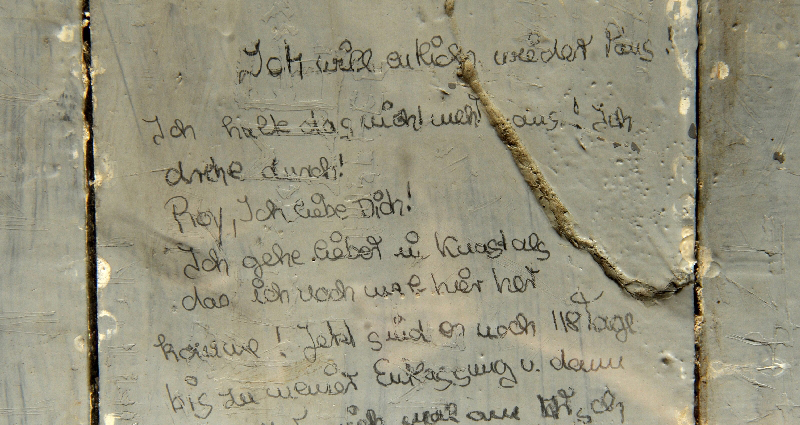 Ich will endlich wieder raus!
Ich halte das nicht mehr aus! Ich
drehe durch!
Roy, Ich liebe Dich!
Ich gehe lieber in Knast als
das ich noch mal hier her
komme! Jetzt sind es noch 118 Tage
bis zu meiner Entlassung u. dann
mich mal am